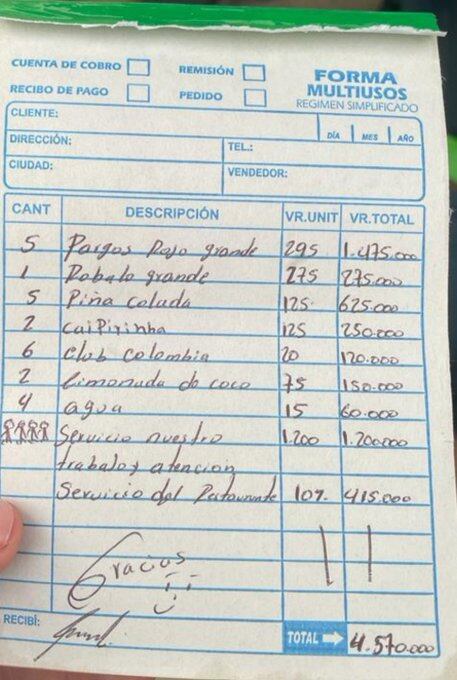 CUENTA DE COBRO REMISIÓN FORMA
RECIBO DE PAGO PEDIDO MULTIUSOS
REGIMEN SIMPLIFICADO
CLIENTE: DÍA MES AÑO
DIRECCIÓN: TEL.:
CIUDAD: VENDEDOR:
CANT DESCRIPCIÓN VR.UNIT VR.TOTAL
5 Pargos Rojo grande 295 1.475.000
1 Robalo grande 275 275.000
5 Piña colada 125. 625.000
2 caiPirinha 125 250.000
6 Club colombia 20 120.000
2 limonada de coco 75 150.000
4 agua 15 60.000
Servicio nuestro 1.200 1.200.000
trabalos atencion
Servicio del Retaurante 10%. 415.000
Gracias
RECIBÍ: TOTAL 4.570.000